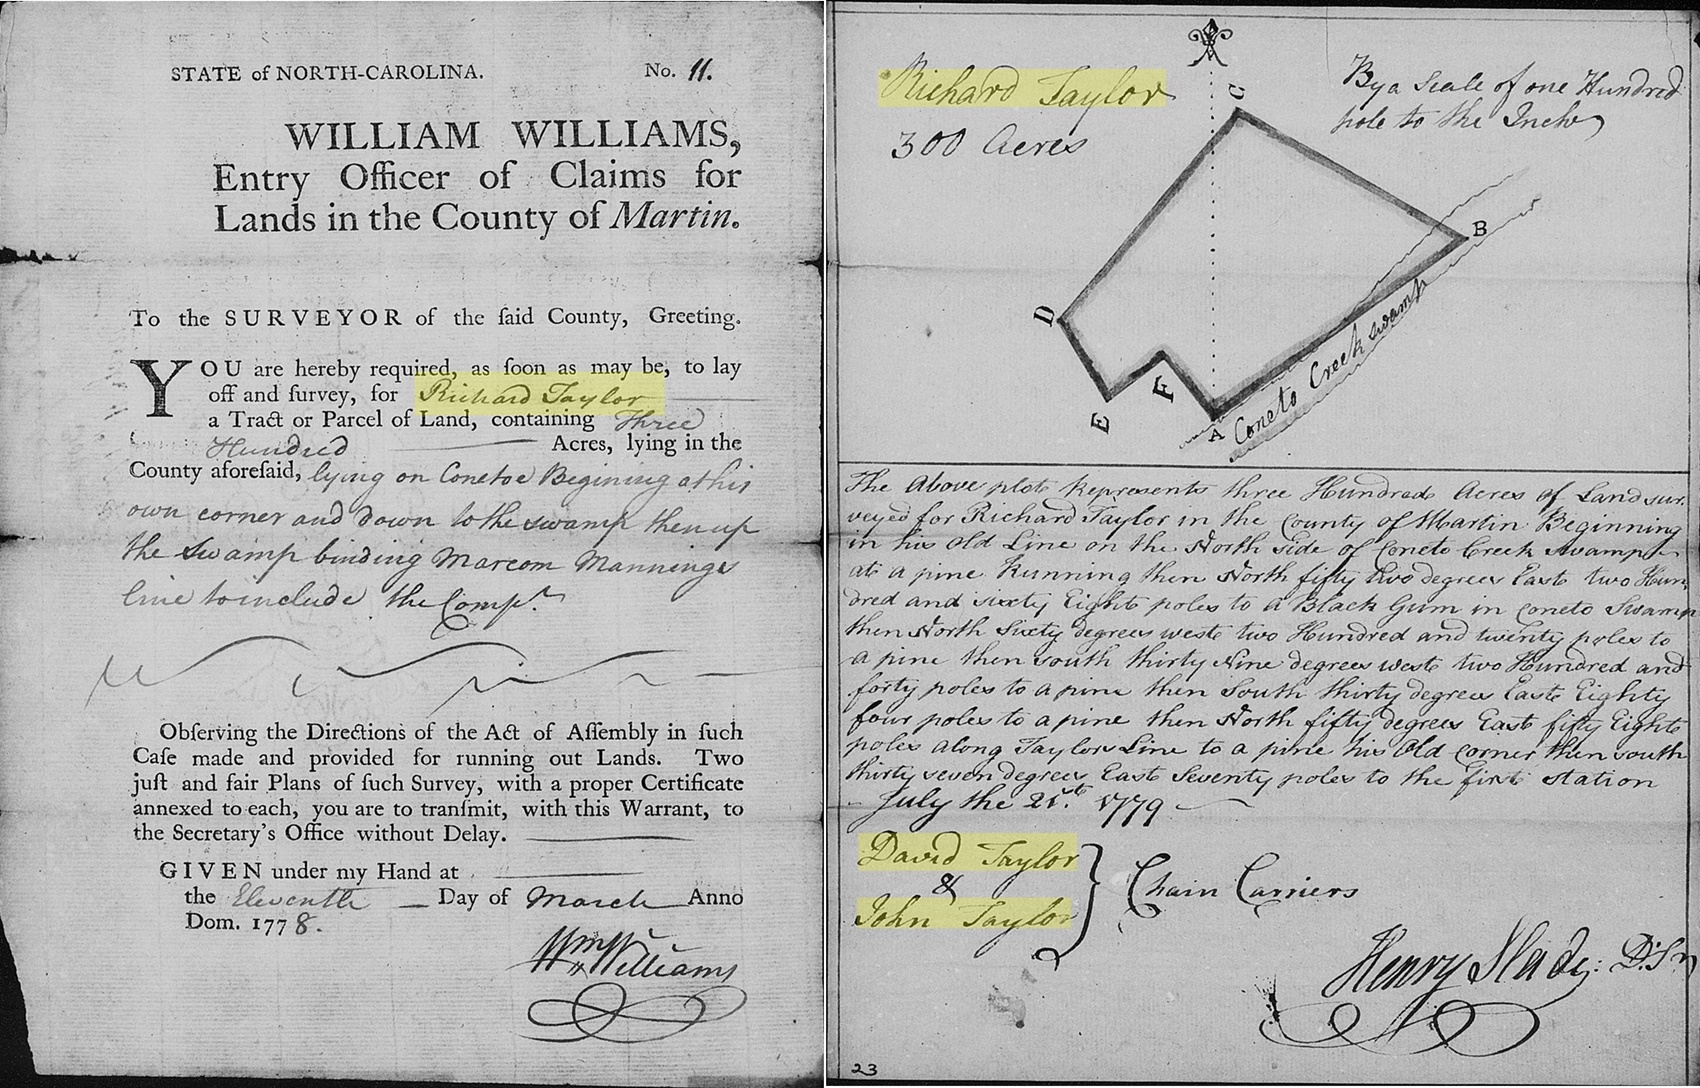 STATE of NORTH-CAROLINA. No. 11.
WILLIAM WILLIAMS,
Entry Officer of Claims for
Lands in the County of Martin.
To the SURVEYOR of the ſaid County, Greeting.
YOU are hereby required, as ſoon as may be, to lay
off and ſurvey, for Richard Taylor
a Tract or Parcel of Land, containing Three
Hundred Acres, lying in the
County aforeſaid, lying on Conetoe Begining at his
own corner and down to the swamp then up
the Swamp binding Marcom Mannings
line to include the Compt.
Obſerving the Directions of the Act of Aſſembly in ſuch
Caſe made and provided for running out Lands. Two
juſt and fair Plans of ſuch Survey, with a proper Certificate
annexed to each, you are to tranſmit, with this Warrant, to
the Secretary's Office without Delay.
GIVEN under my Hand at
the Eleventh Day of March Anno
Dom. 1778.
Wm Williams
Richard Taylor
300 Acres
By a Scale of one Hundred
pole to the Inch
C
B
D
E
F
A
Coneto Creek swamp
The Above plot Represents three Hundred Acres of Land sur-
veyed for Richard Taylor in the County of Martin Beginning
in his Old Line on the North side of Coneto Creek Swamp
at a pine Running then North fifty two degrees East two Hun
dred and sixty Eight poles to a Black Gum in Coneto Swamp
then North Sixty degrees west two Hundred and twenty poles to
a pine then south thirty Nine degrees west two Hundred and
forty poles to a pine then South thirty degrees East Eighty
four poles to a pine then North fifty degrees East fifty Eight
poles along Taylors Line to a pine his Old Corner then south
thirty seven degrees East Seventy poles to the first station
July the 21st. 1779
David Taylor
&
John Taylor
Chain Carriers
Henry Slade: D:Sr
23